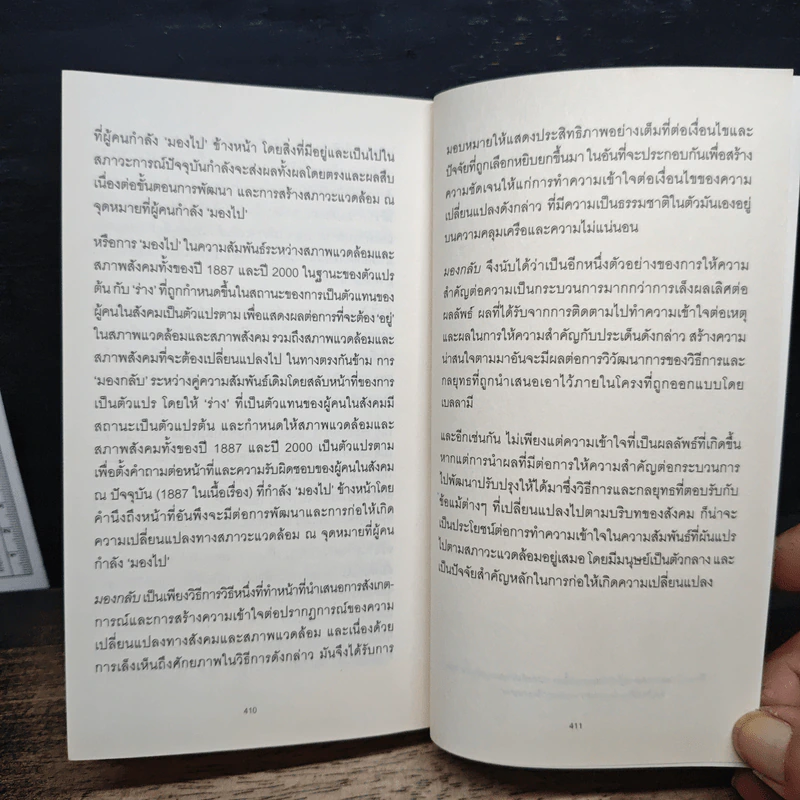 ที่ผู้คนกำลัง ‘มองไป’ ข้างหน้า โดยสิ่งที่มีอยู่และเป็นไปใน
สภาวะการณ์ปัจจุบันกำลังจะส่งผลทั้งผลโดยตรงและผลสืบ
เนื่องต่อขั้นตอนการพัฒนา และการสร้างสภาวะแวดล้อม ณ
จุดหมายที่ผู้คนกำลัง ‘มองไป’
หรือการ ‘มองไป’ ในความสัมพันธ์ระหว่างสภาพแวดล้อมและ
สภาพสังคมทั้งของปี 1887 และปี 2000 ในฐานะของตัวแปร
ต้น กับ ‘ร่าง’ ที่ถูกกำหนดขึ้นในสถานะของการเป็นตัวแทนของ
ผู้คนในสังคมเป็นตัวแปรตาม เพื่อแสดงผลต่อการที่จะต้อง ‘อยู่’
ในสภาพแวดล้อมและสภาพสังคม รวมถึงสภาพแวดล้อมและ
สภาพสังคมที่จะต้องเปลี่ยนแปลงไป ในทางตรงกันข้าม การ
‘มองกลับ’ ระหว่างคู่ความสัมพันธ์เดิมโดยสลับหน้าที่ของการ
เป็นตัวแปร โดยให้ ‘ร่าง’ ที่เป็นตัวแทนของผู้คนในสังคมมี
สถานะเป็นตัวแปรต้น และกำหนดให้สภาพแวดล้อมและ
สภาพสังคมทั้งของปี 1887 และปี 2000 เป็นตัวแปรตาม
เพื่อตั้งคำถามต่อหน้าที่และความรับผิดชอบของผู้คนในสังคม
ณ ปัจจุบัน (1887 ในเนื้อเรื่อง) ที่กำลัง ‘มองไป’ ข้างหน้าโดย
คำนึงถึงหน้าที่อันพึงจะมีต่อการพัฒนาและการก่อให้เกิด
ความเปลี่ยนแปลงทางสภาวะแวดล้อม ณ จุดหมายที่ผู้คน
กำลัง ‘มองไป’
มองกลับ เป็นเพียงวิธีการวิธีหนึ่งที่ทำหน้าที่นำเสนอการสังเกต-
การณ์และการสร้างความเข้าใจต่อปรากฏการณ์ของความ
เปลี่ยนแปลงทางสังคมและสภาพแวดล้อม และเนื่องด้วย
การเล็งเห็นถึงศักยภาพในวิธีการดังกล่าว มันจึงได้รับการ
410
มอบหมายให้แสดงประสิทธิภาพอย่างเต็มที่ต่อเงื่อนไขและ
ปัจจัยที่ถูกเลือกหยิบยกขึ้นมา ในอันที่จะประกอบกันเพื่อสร้าง
ความชัดเจนให้แก่การทำความเข้าใจต่อเงื่อนไขของความ
เปลี่ยนแปลงดังกล่าว ที่มีความเป็นธรรมชาติในตัวมันเองอยู่
บนความคลุมเครือและความไม่แน่นอน
มองกลับ จึงนับได้ว่าเป็นอีกหนึ่งตัวอย่างของการให้ความ
สำคัญต่อความเป็นกระบวนการมากกว่าการเล็งผลเลิศต่อ
ผลลัพธ์ ผลที่ได้รับจากการติดตามไปทำความเข้าใจต่อเหตุ
และผลในการให้ความสำคัญกับประเด็นดังกล่าว สร้างความ
น่าสนใจตามมาอันจะมีผลต่อการวิวัฒนาการของวิธีการและ
กลยุทธที่ถูกนำเสนอเอาไว้ภายในโครงที่ถูกออกแบบโดย
เบลลามี
และอีกเช่นกัน ไม่เพียงแต่ความเข้าใจที่เป็นผลลัพธ์ที่เกิดขึ้น
หากแต่การนำผลที่มีต่อการให้ความสำคัญต่อกระบวนการ
ไปพัฒนาปรับปรุงให้ได้มาซึ่งวิธีการและกลยุทธที่ตอบรับกับ
ข้อแม้ต่างๆ ที่เปลี่ยนแปลงไปตามบริบทของสังคม ก็น่าจะ
เป็นประโยชน์ต่อการทำความเข้าใจในความสัมพันธ์ที่ผันแปร
ไปตามสภาวะแวดล้อมอยู่เสมอ โดยมีมนุษย์เป็นตัวกลาง และ
เป็นปัจจัยสำคัญหลักในการก่อให้เกิดความเปลี่ยนแปลง
411